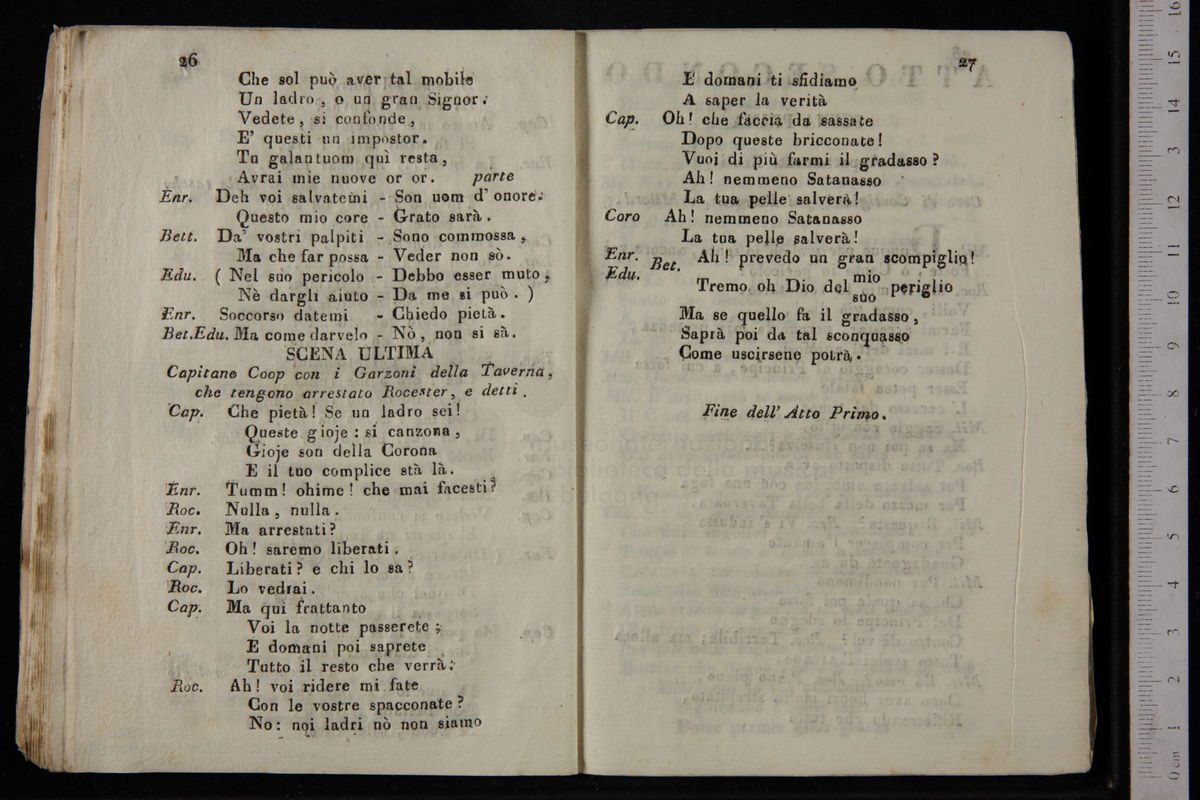 26
Che sol può aver tal mobile
Un ladro, o un gran Signor.
Vedete, si confonde,
E' questi un impostor.
Tu galantuom quì resta,
Avrai mie nuove or or. parte
Enr. Deh voi salvatemi - Son uom d'onore:
Questo mio core - Grato sarà.
Bett. Da' vostri palpiti - Sono commossa,
Ma che far possa - Veder non sò.
Edu. ( Nel suo pericolo - Debbo esser muto,
Nè dargli aiuto - Da me si può. )
Enr. Soccorso datemi - Chiedo pietà.
Bet.Edu. Ma come darvelo - Nò, non si sà.
SCENA ULTIMA
Capitano Coop con i Garzoni della Taverna,
che tengono arrestato Rocester, e detti.
Cap. Che pietà! Se un ladro sei!
Queste gioje: si canzona,
Gioje son della Corona
E il tuo complice stà là.
Enr. Tumm! ohime! che mai facesti?
Roc. Nulla, nulla.
Enr. Ma arrestati?
Roc. Oh! saremo liberati.
Cap. Liberati? e chi lo sa?
Roc. Lo vedrai.
Cap. Ma qui frattanto
Voi la notte passerete;
E domani poi saprete
Tutto il resto che verrà:
Roc. Ah! voi ridere mi fate
Con le vostre spacconate?
No: noi ladri nò non siamo
27
E domani ti sfidiamo
A saper la verità
Cap. Oh! che faccia da sassate
Dopo queste bricconate!
Vuoi di più farmi il gradasso?
Ah! nemmeno Satanasso
La tua pelle salverà!
Coro Ah! nemmeno Satanasso
La tua pelle salverà!
Enr. Bet. Ah! prevedo un gran scompiglio!
Edu. Tremo oh Dio del mio periglio
suo
Ma se quello fa il gradasso,
Saprà poi da tal sconquasso
Come uscirsene potrà.
Fine dell' Atto Primo.